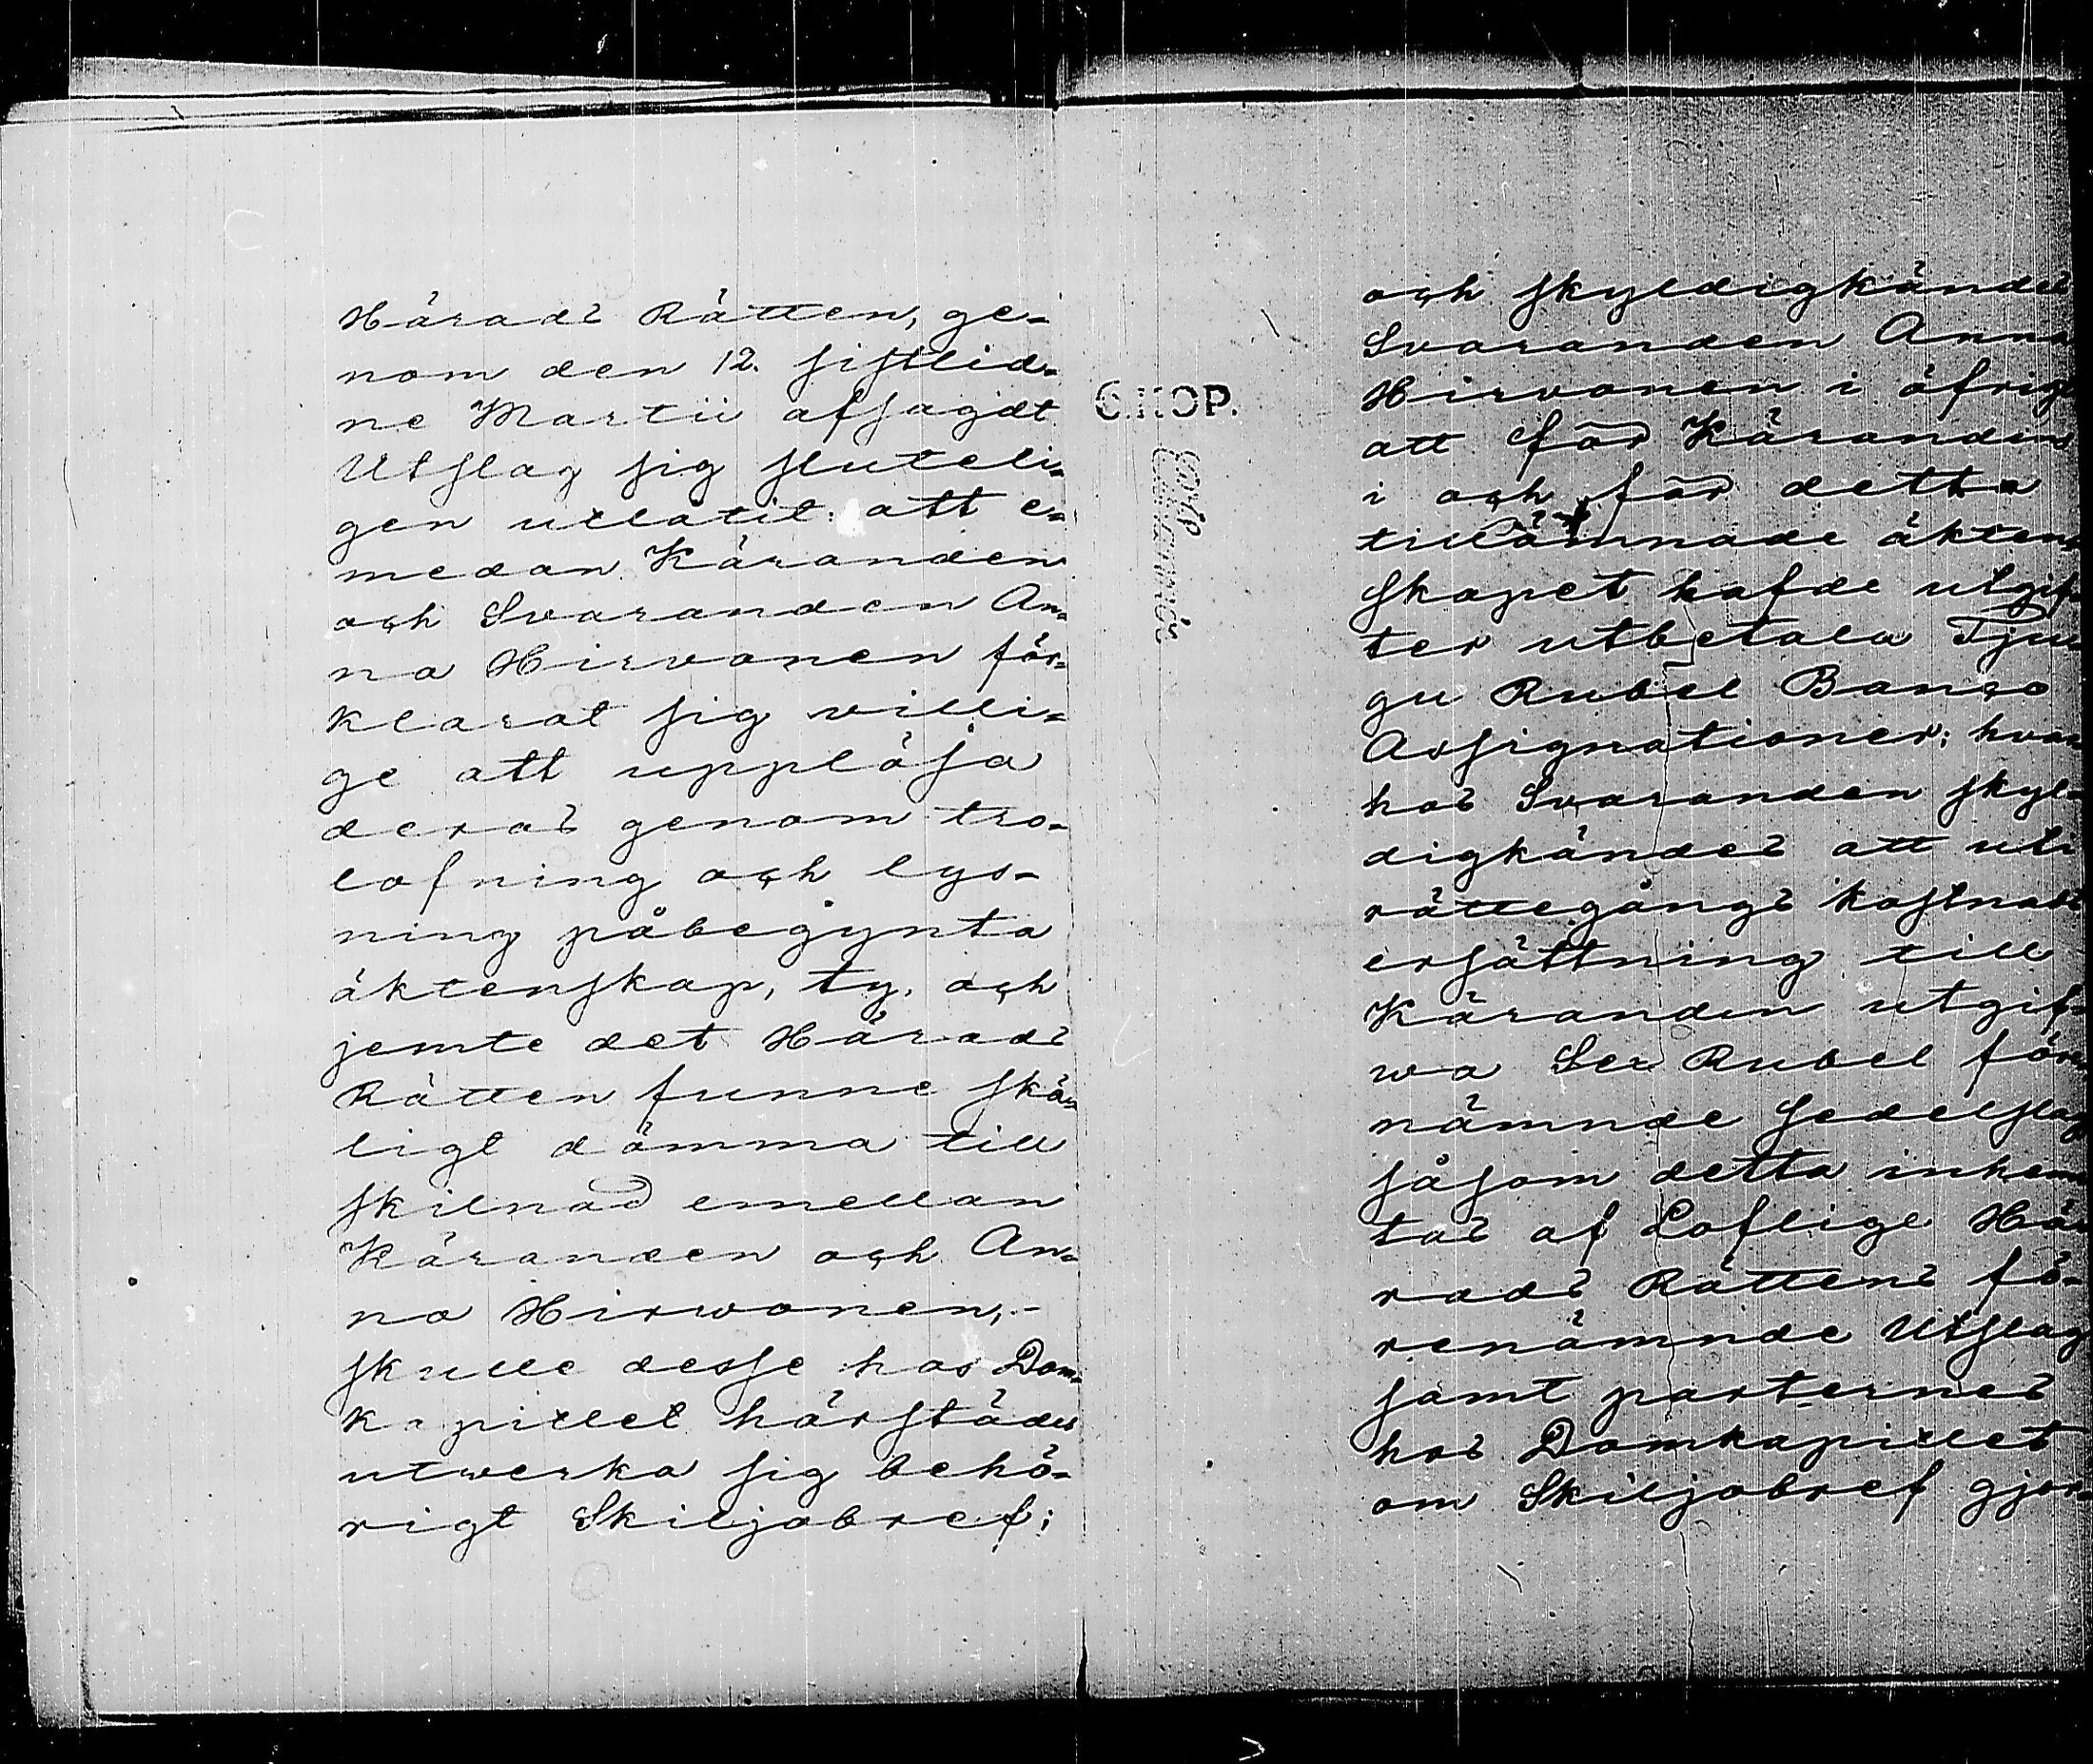 Härads Rätten, ge-
nom den 12. sistlid-
ne Martii afsagdt
Utslag sig sluteli-
gen utlåtit: att e-
medan Käranden
och Svaranden An-
na Hirvonen för-
klarat sig villi-
ge att upplösa
deras genom tro-
lofning och lys-
ning påbegynta
äktenskap, ty, och
jemte det Härads
Rätten funne skä-
ligt dömma till
skilnad emellan
Käranden och An-
na Hirwonen,-
skulle desse hos Dom-
kapitlet härstädes
utwerka sig behö-
rigt Skiljobref;
6.KOP.
och skyldigkändes
Svaranden Anna
Hirvonen i öfrigt
att för Kärandens
i och för detta
tillämnade äkten-
skapet hafde utgif-
ter utbetala Tju-
gu Rubel Banco
Assignationer; hvar-
hos Svaranden skyl-
digkändes att uti
rättegångs kostnads
ersättning till
Käranden utgif-
wa Sex Rubel för-
nämnde Sedelslag
såsom detta inhem-
tas af Loflige Hä-
rads Rättens fö-
renämnde Utslag
samt parternes
hos Domkapitlet
om Skiljobref gjor-